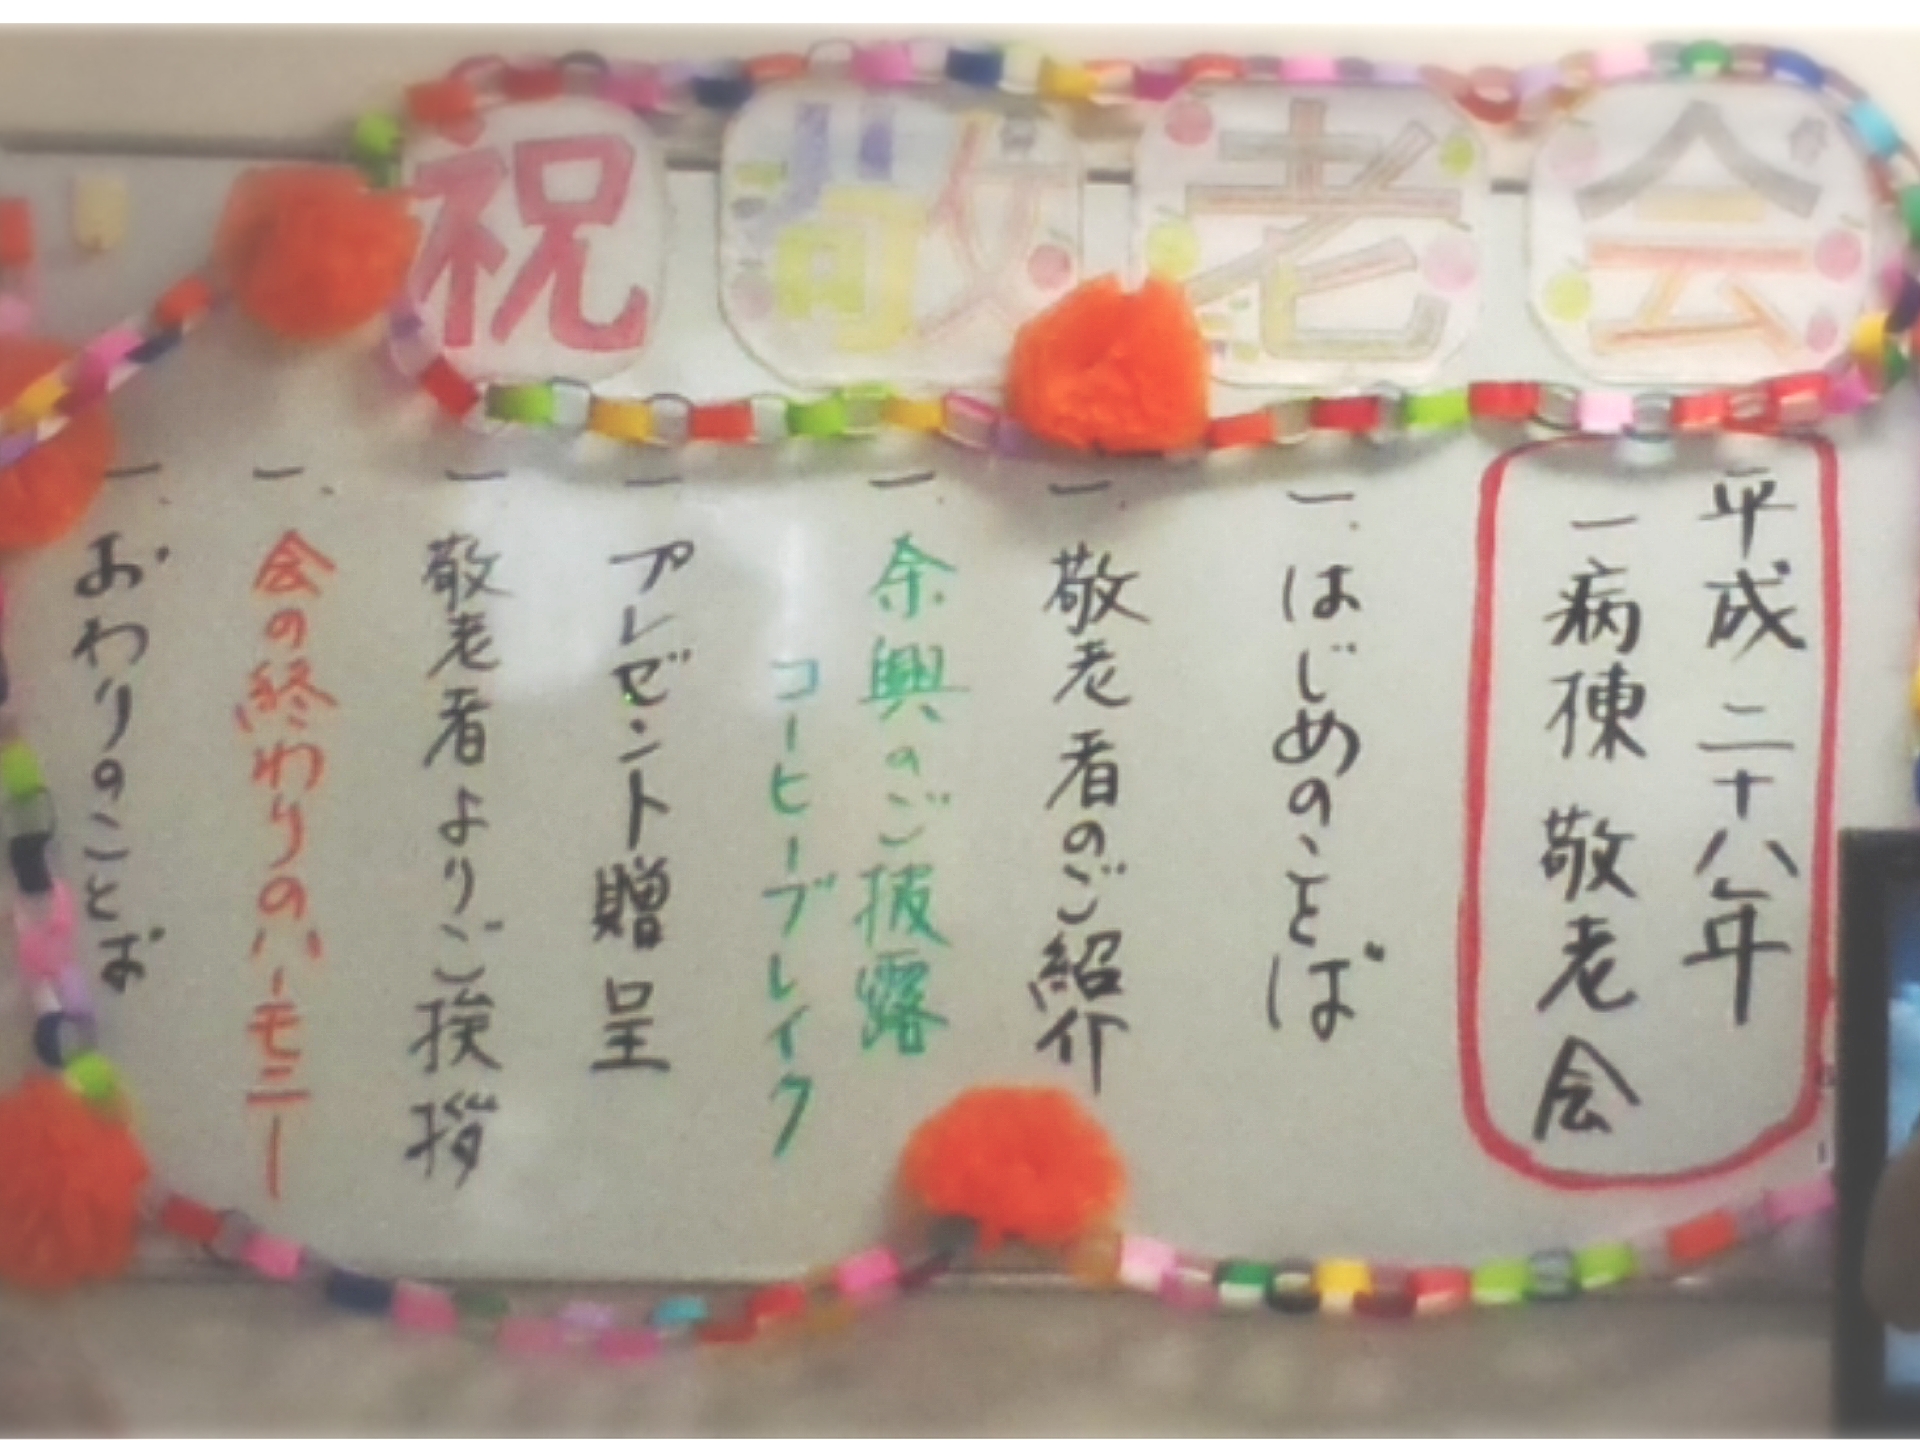 祝敬老会
平成二十八年
一病棟 敬老会
一.はじめのことば
一.敬老者のご紹介
一.余興のご披露
コーヒーブレイク
一 プレゼント贈呈
一.敬老者よりご挨拶
一.会の終わりのハーモニー
一.おわりのことば